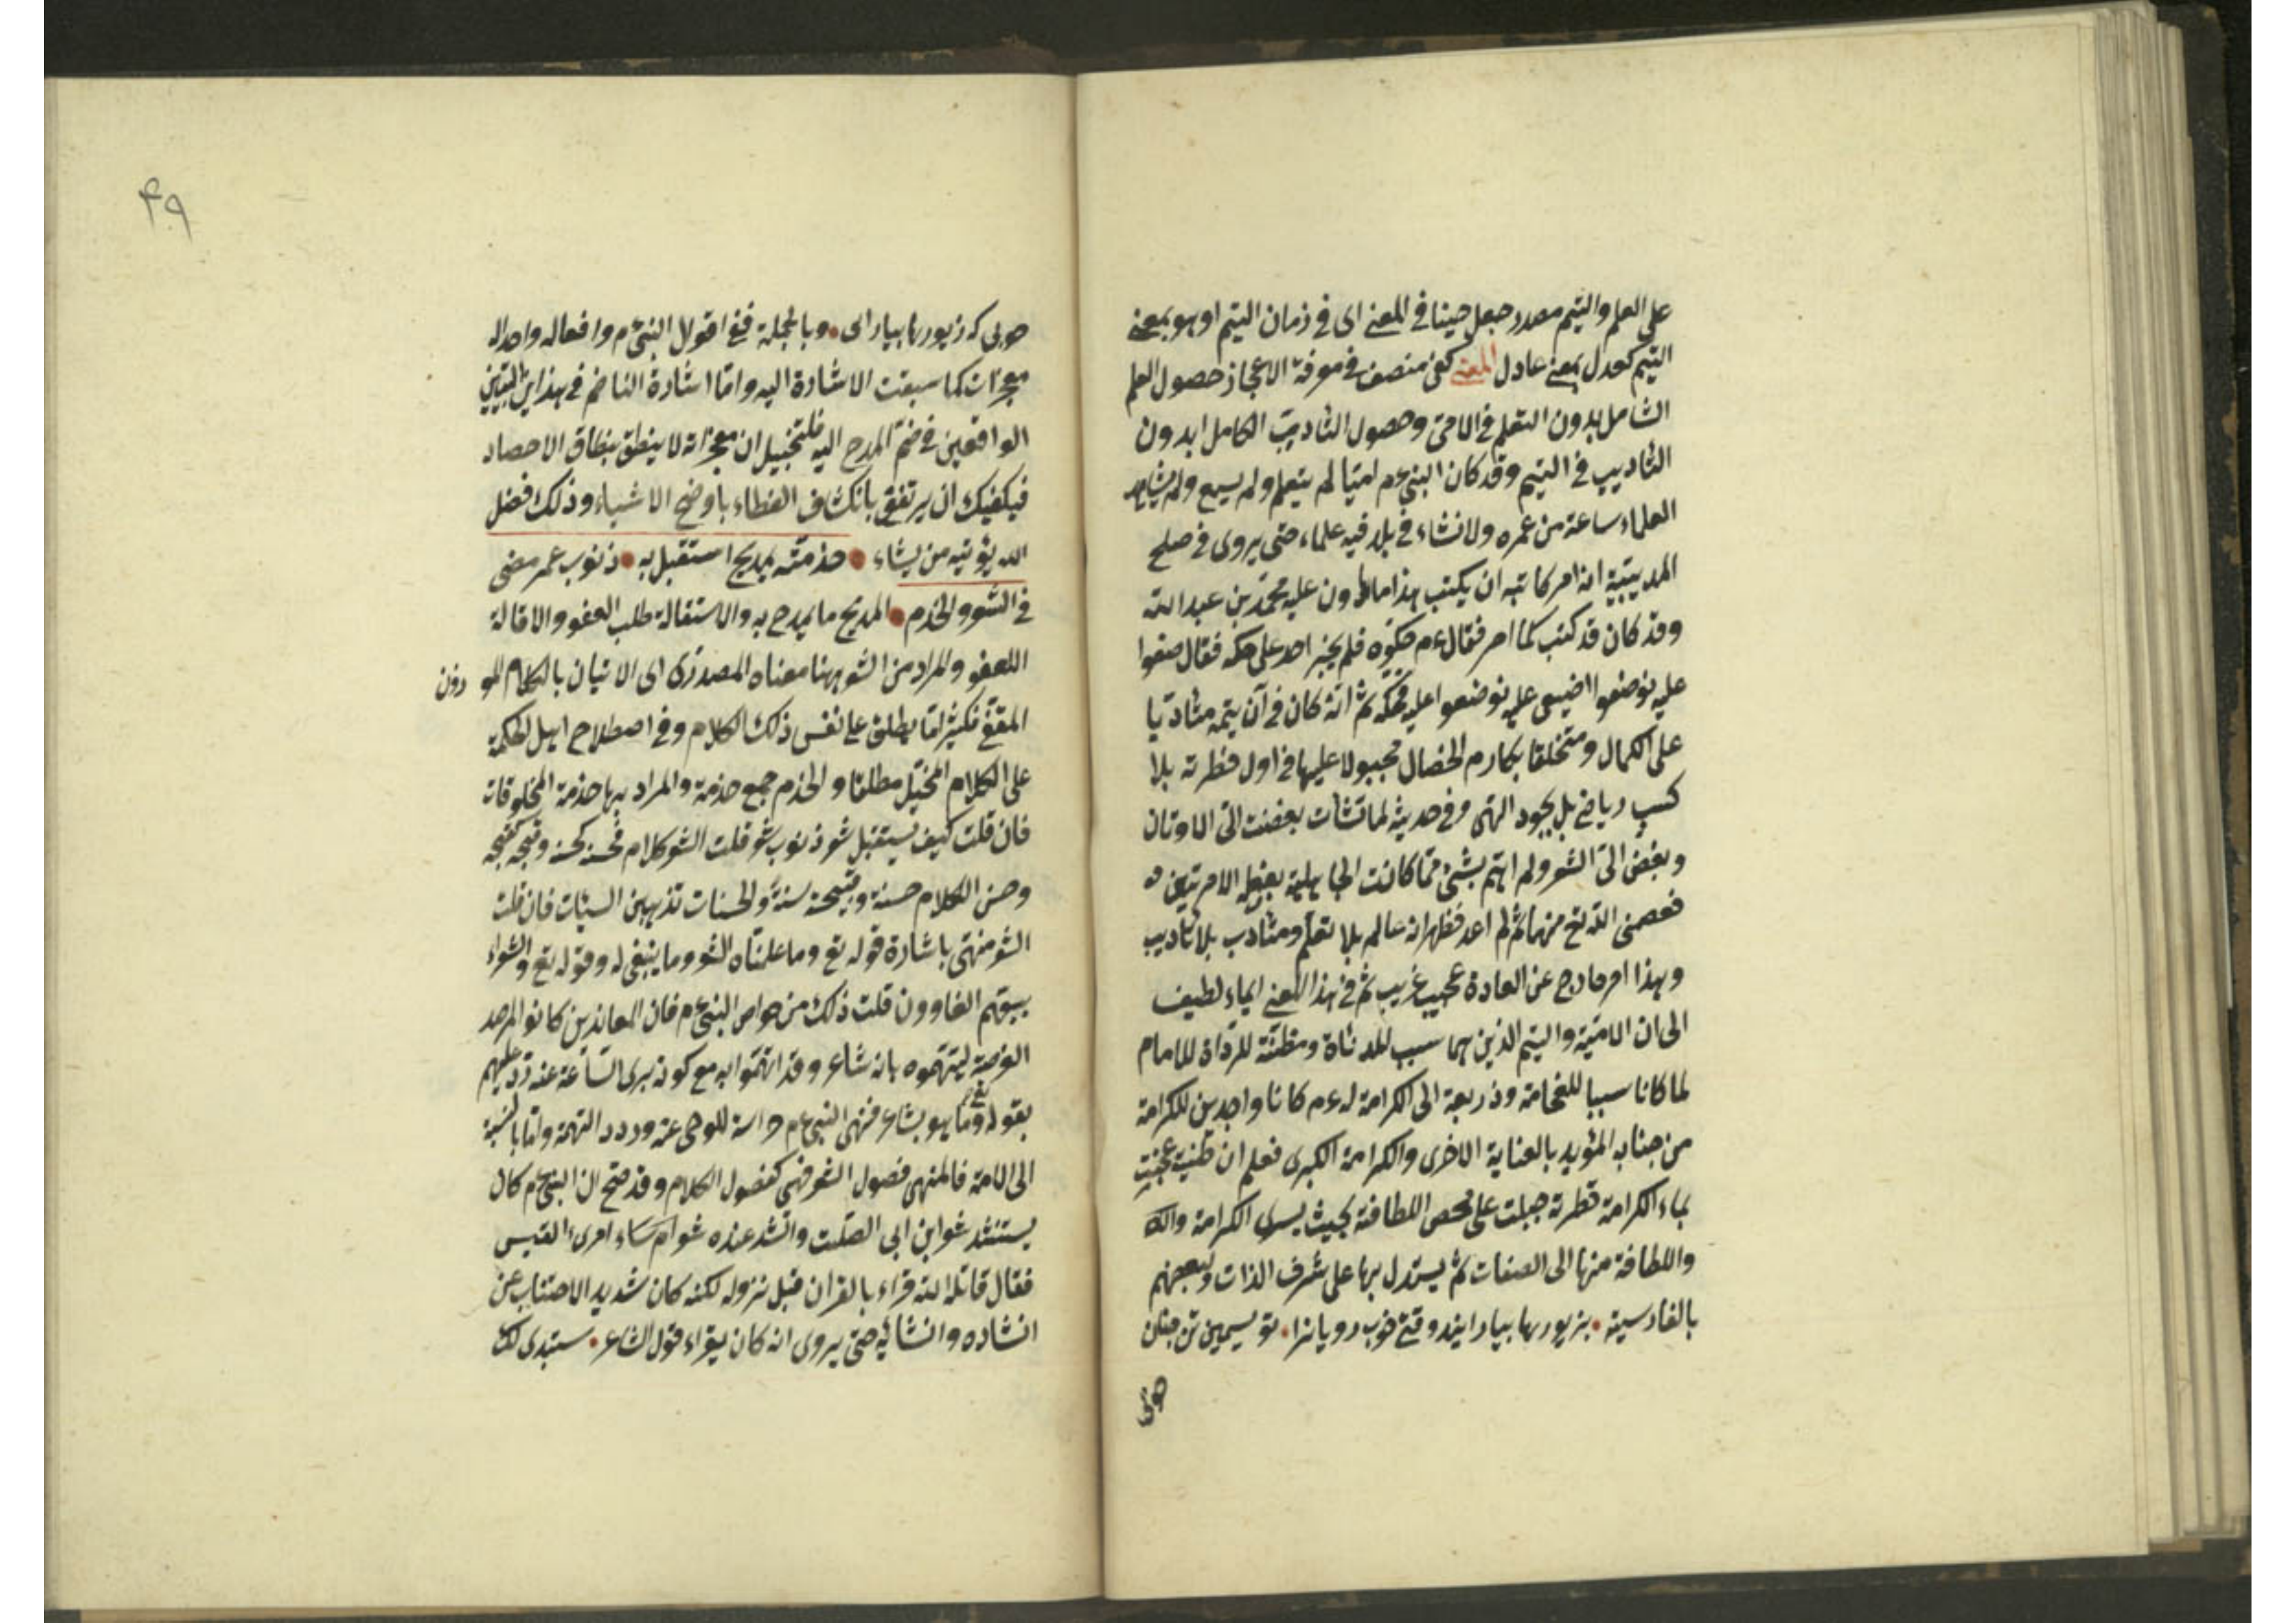 على العلم واليتم مصدر جعل حينا في المعنى اى في زمان اليتم او هو بمعنى
اليتيم كعدل بمعنى عادل المعنى كفى منصف في معرفة الاعجاز حصول العلم
الشامل بدون التعلم في الامى وحصول التأديب الكامل بدون
التأديب في اليتيم وقد كان النبى ءم اميا لم يتعلم ولم يسمع ولم يشاهد
العلماء ساعة من عمره ولا نشاء في بلد فيه علماء حتى يروى في صلح
الحديبية انه امر كاتبه ان يكتب هذا ما عليه محمد بن عبد الله
وقد كان قد كتب كما امر فقال ءم حكوه فلم يجتر احد على حكه فقال ضعوا
عليه فوضعوا اعليه فحكه ثم انه كان في آن يتمه متأدبا
على الكمال ومتخلقا بمكارم الخصال مجبولا عليها في اول فطرته بلا
كسب رياضى بل بجود الهى وفى حديثه لما نشأت بغضت الى الاوثان
وبغض الى الشعر ولم اهم بشئ مما كانت الجاهلية بفعله الا مرتين
فعصمنى الله تع منهما ثم لم اعد فظهر انه عالم بلا تعلم ومتأدب بلا تأديب
وهذا امر خارج عن العادة عجيب غريب ثم في هذا المعنى ايماء لطيف
الى ان الامية واليتم الذين هما سبب للدناة ومظنة للرداة للامام
لما كانا سببا للفخامة وذريعة الى الكرامة له ءم كانا واجدين للكرامة
من جنابه المؤيد بالعناية الاخرى والكرامة الكبرى فعلم ان طينته عجنت
بماء الكرامة فطرته جبلت على محض اللطافة بحيث يسرى الكرامة
واللطافة منها الى الصفات ثم يستدل بها على شرف الذات ولبعضهم
بالفارسية • بزيورها بيارايند وقتى خوب رويانرا • تو سيمين تن چنان
خوبى
خوبى كه زيورها بيارايى • وبالجملة ففى اقوال النبى ءم وافعاله واحواله
معجزات كما سبقت الاشارة اليه واما اشارة الناظم في هذاين البيتين
الواقعين في ختم المدح اليه فلتخييل ان معجزاته لا ينطق بنطاق الاحصاء
فيكفيك ان يرتفق بانكشاف الغطاء باوضح الاشياء وذلك فضل
الله يؤتيه من يشاء • خدمته بمديح استقيل به • ذنوب عمر مضى
في الشعر والخدم • المديح ما يمدح به والاستقالة طلب العفو والاقالة
العفو والمراد من الشعر ههنا معناه المصدرى اى الاتيان بالكلام الموزون
المقفى فكثيرا ما يطلق على نفس ذلك الكلام وفى اصطلاح اهل الحكمة
على الكلام المخيل مطلقا والخدم جمع خدمة والمراد بها خدمة المخلوقات
فان قلت كيف يستقيل شعر ذنوب شعر قلت الشعر كلام فحسنه كحسنه وقبحه كقبحه
وحسن الكلام حسنة وقبيحه سيئة والحسنات تذهبين السيئات فان قلت
الشعر منهى باشارة قوله تع وما علمناه الشعر وما ينبغى له وقوله تع والشعراء
يتبعهم الغاوون قلت ذلك من خواص النبى ءم فان المعاندين كانوا المرصد
الفرصة ليتهموه بانه شاعر وقد اتهموا به مع كونه برى الساعة عنه رد عليهم
بقوله تع وما هو بشاعر فنهى النبى ءم حراسة للوحى عنه وردد التهمة واما بالنسبة
الى الامة فالمنهى فضول الشعر فهى كفضول الكلام وقد صح ان النبى ءم كان
يستنشد شعر ابن ابى الصلت وانشد عنده شعر امرىء القيس
فقال قاتله الله قراء بالقران قبل نزوله لكنه كان شديد الاجتناب عن
انشاده وانشائه حتى يروى انه كان يقراء قول الشاعر • ستبدى لك
۴۹